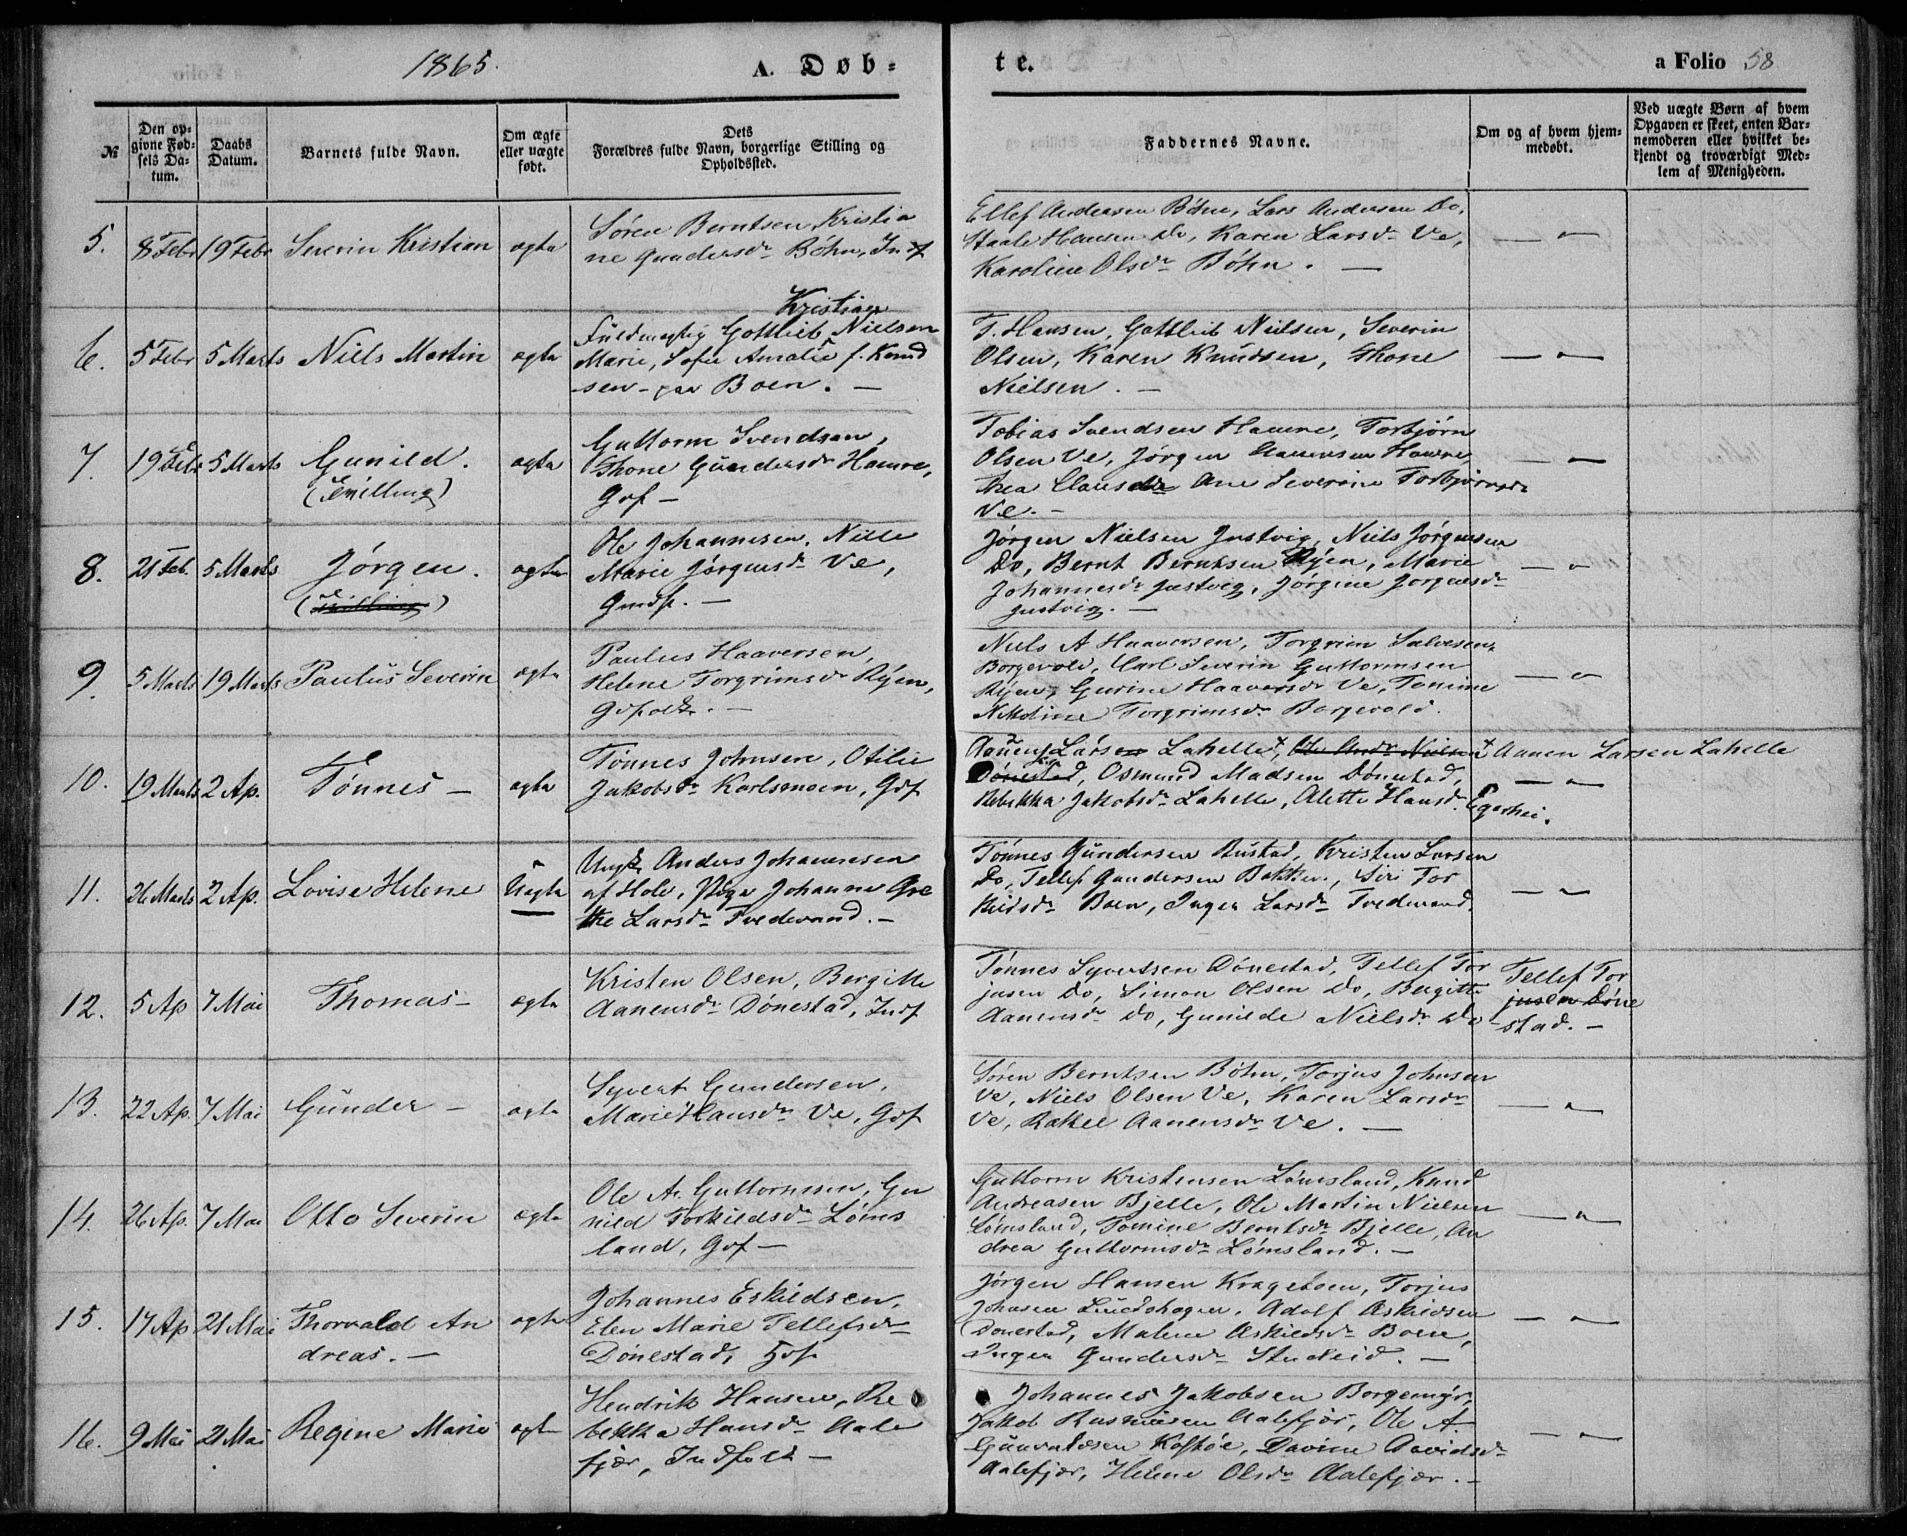 1865.
A. Døb-
te.
a Folio 58
№
Den op-
givne Fød-
sels Da-
tum.
Daabs
Datum.
Barnets fulde Navn.
Om ægte
eller uægte
født.
Dets
Forældres fulde Navn, borgerlige Stilling og
Opholdssted.
Faddernes Navne.
Om og af hvem hjem-
medøbt.
Ved uægte Børn af hvem
Opgaven er skeet, enten Bar-
nemoderen eller hvilket be-
kjendt og troværdigt Med-
lem af Menigheden.
5. 8 Febr 19 Febr Severin Kristian ægte
Søren Berntsen, Kristia
ne Gundersdr Bøhn, Indf
Ellef Andersen Bøhn, Lars Andersen Do,
Staale Hansen Do, Karen Larsdr Ve,
Karoline Olsdr Bøhn. —
— " —
6. 5 Febr 5 Marts Niels Martin ægte
Kristian
Fuldmægtig Gottlieb Nielsen
Marie, Sofie Amalie f. Knud
sen - paa Boen. —
T. Hansen, Gottlieb Nielsen, Severin
Olsen, Karen Knudsen, Thone
Nielsen. —
— " —
7. 19 Febr 5 Marts Gunild. ægte
(Tvilling)
Guttorm Svendsen,
Thone Gundersdr Hamre,
Gvf —
Tobias Svendsen Hamre, Torbjørn
Olsen Ve, Jørgen Hamre,
Thea Clausdr Ane Severine Torbjørnsdr
Ve. —
— " —
8. 21 Feb. 5 Marts Jørgen. ægte
(Tvilling)
Ole Johannesen, Nille
Marie Jørgensdr Ve,
Grndf. —
Jørgen Nielsen Justvig, Niels Jørgensen
Do, Bernt Berntsen Ryen, Marie
Johannesdr Justvig, Jørgine Jørgensdr
Justvig. —
— " —
9. 5 Marts 19 Marts Paulus Severin ægte
Paulus Haaversen,
Helene Torgrimsdr Ryen,
Gvfolk. —
Niels A Haaversen, Torgrim Salvesen,
Borgevold, Carl Severin Guttormsen
Ryen, Gurine Haaversdr Ve, Tomine
Nikoline Torgrimsdr Borgevold.
— " —
10. 19 Marts 2 Ap. Tønnes — ægte
Tønnes Johnsen, Otilie
Jakobsdr Karlsmoen, Gvf
Aanen Larsen Lahelle, Ole Andr Nielsen
Dønestad, Osmund Madsen Dønestad,
Rebekka Jakobsdr Lahelle, Alette Hansdr Egerhei.
Aanen Larsen Lahelle
— " —
11. 26 Marts 2 Ap. Lovise Helene Uægte
Ungk. Anders Johannesen
af Hole, Pige Johanne Gre
the Larsdr Tvedevand. —
Tønnes Gundersen Bustad, Kristen Larsen
Do, Tellef Gundersen Bakken, Siri Tor
kildsdr Boen, Inger Larsdr Tvedevand.
— " —
12. 5 Ap 7 Mai Thomas — ægte
Kristen Olsen, Bergitte
Aanensdr Dønestad, Indf
Tønnes Syvertsen Dønestad, Tellef Tor
jusen Do, Simon Olsen Do, Birgitte
Aanensdr Do, Gunilde Nielsdr Do
Tellef Tor
jusen Døne
stad. —
13. 22 Ap. 7 Mai Gunder — ægte
Syvert Gundersen,
Marie Hansdr Ve, Gvf
Søren Berntsen Bøhn, Torjus Johnsen
Ve, Niels Olsen Ve, Karen Larsdr
Ve, Rakel Aanensdr Ve. —
— " —
14. 26 Ap. 7 Mai Otto Severin ægte
Ole A. Guttormsen, Gu
nild Torkildsdr Løms
land, Gvf —
Guttorm Kristensen Lømsland, Knud
Andreasen Bjelle, Ole Martin Nielsen
Lømsland, Tomine Berntsdr Bjelle, An
drea Guttormsdr Lømsland. —
— " —
15. 17 Ap 21 Mai Thorvald An ægte
dreas. —
Johannes Eskildsen,
Elen Marie Tellefsdr
Dønestad, Hvf
Jørgen Hansen Krageboen, Torjus
Johnsen Lundshagen, Adolf Askildsen
Dønestad, Malene Askildsdr Boen,
Inger Gundersdr Studeid. —
— " —
16. 9 Mai 21 Mai Regine Marie ægte
Hendrik Hansen, Re
bekka Hansdr Aale
fjær, Indfolk —
Johannes Jakobsen Borgemyr,
Jakob Rasmusen Aalefjær, Ole A.
Gunvaldsen Kostøe, Davine Davidsdr
Aalefjær, Helene Olsdr Aalefjær. —
— " —